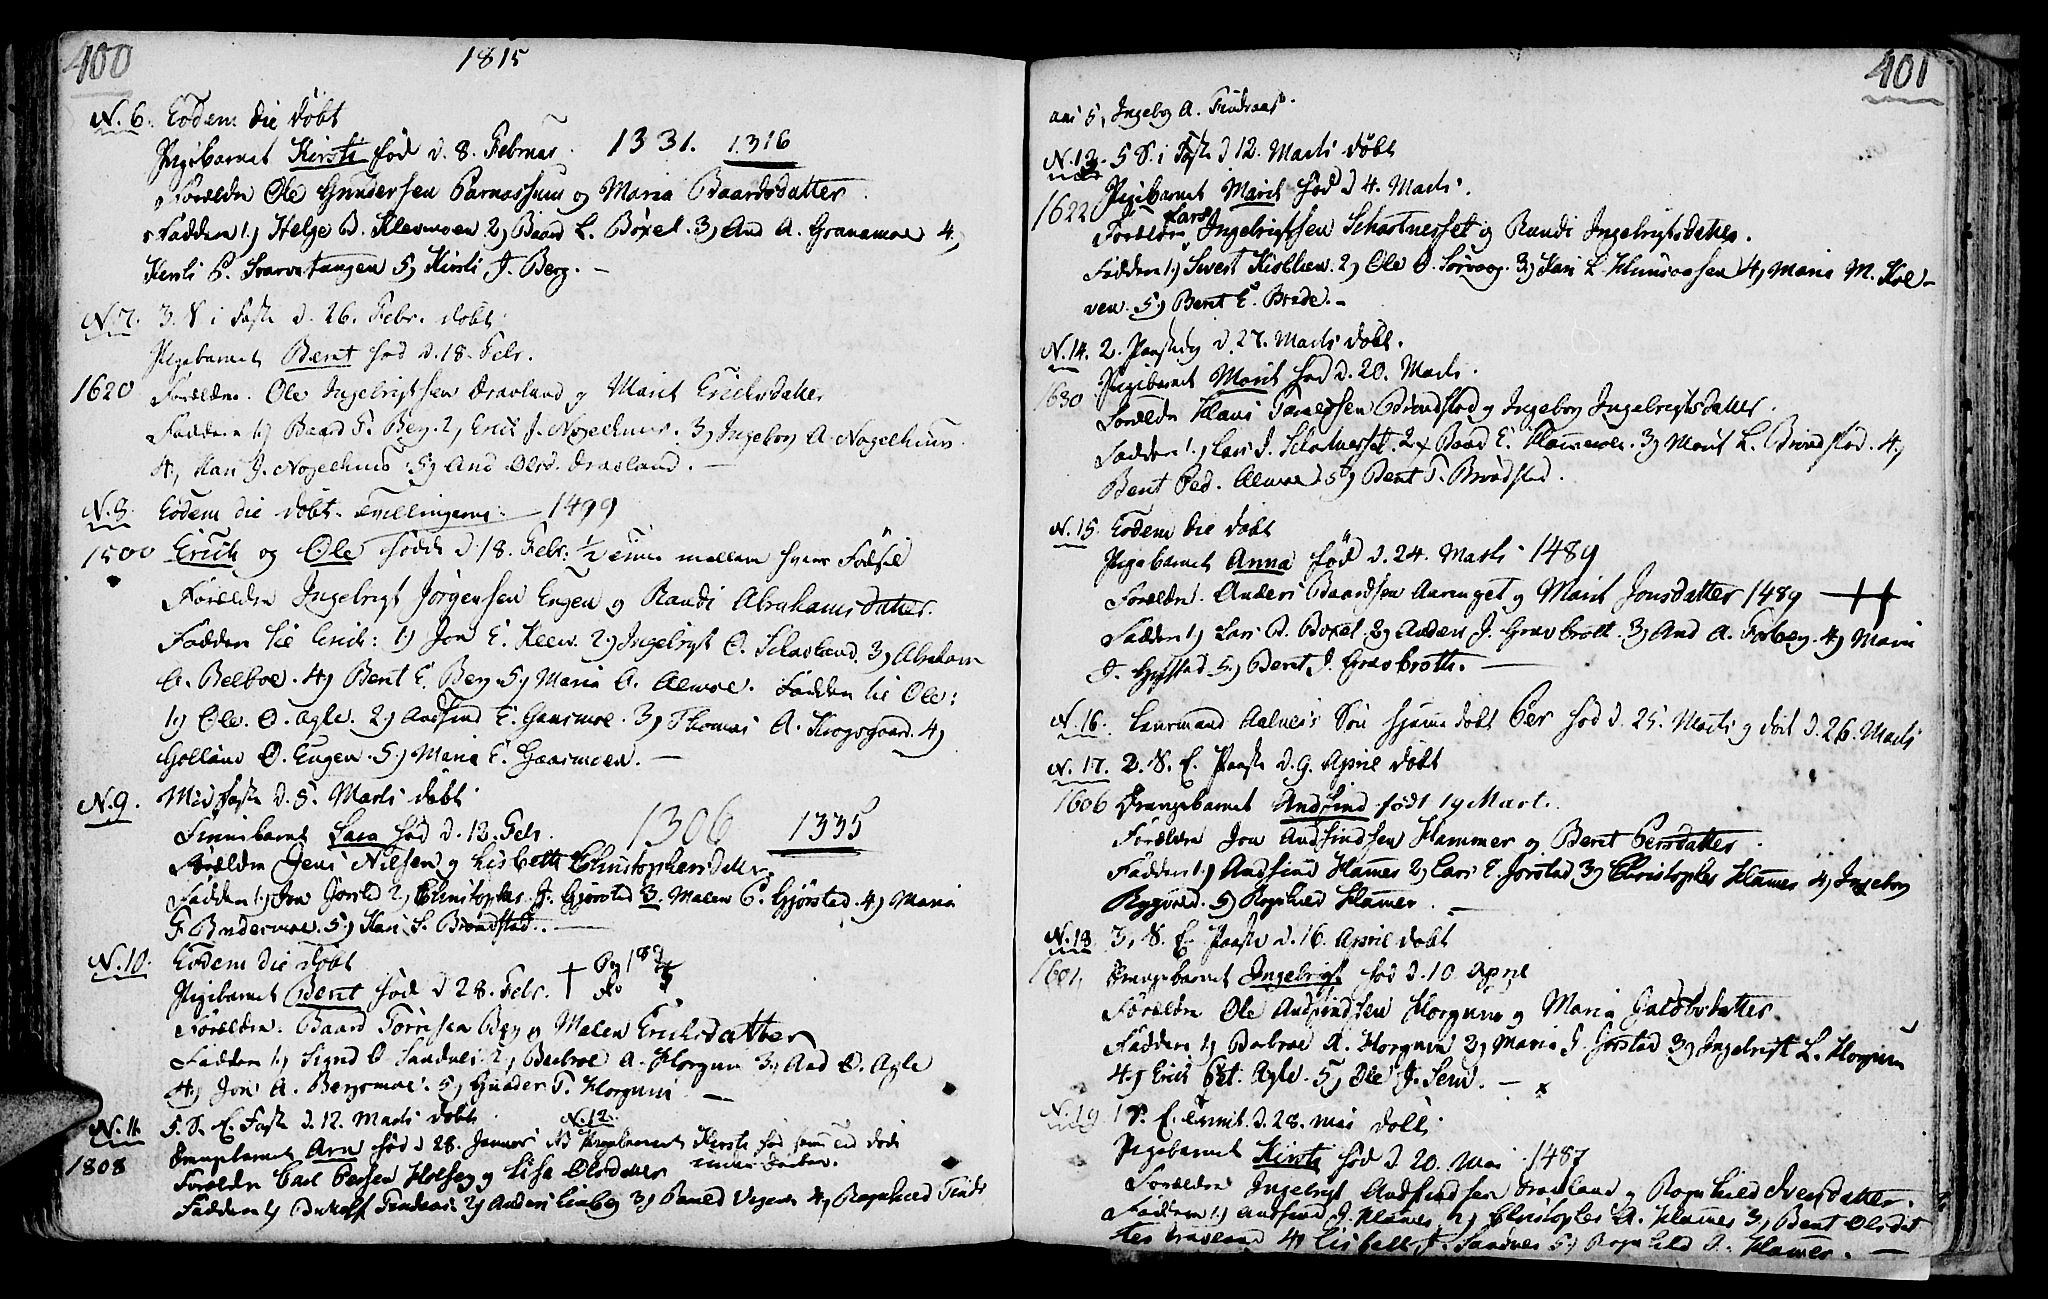 400
1815
N. 6. Eodem die döbt
Pigebarnet Kirsti född d. 8. Februar. 1331. 1316
Forældre Ole Gundersen Parnassum og Maria Baardsdatter.
Faddere 1) Helge B. Klevmoen 2) Baard L. Böxel. 3) And A. Granamoe 4)
Kirsti P. Svarvatangen 5) Kirsti J. Berg. —
N. 7. 3. S. i Faste d. 26. Febr. döbt
Pigebarnet Berit född d. 18. Febr.
1620 Forældre. Ole Ingebrigtsen Dravland og Marit Ericksdatter
Faddere 1) Baard T. Berg. 2) Erick J. Nogelhuus. 3) Ingeborg A. Nogelhuus.
4) Kari J. Nogelhuus. 5) And Olsd. Dravland. —
N. 8. Eodem die döbt. Tvillingerne. 1499
1500 Erich og Ole födde d. 18. Febr. ½ time mellem hver Födsel
Forældre Ingebrigt Jörgensen Eugen og Randi Abrahamsdatter.
Faddere til Erich: 1) Jon E. 2) Ingebrigt O. Skavland. 3) Abraham
A. Belboe. 4) Berit E. Berg. 5) Maria A. Almoe. Faddere til Ole:
1) Ole O. Agle. 2) Andfind E. Gaasmoe. 3) Thomas A. Krogsgaard. 4)
Golline O. Eugen. 5) Maria E. Gaasmoen. —
N. 9. Midfaste d. 5. Marti döbt
Finnebarnet Sara född d. 12. Febr. 1306 1335
Forældre Jens Nilsen og Lisbeth Christophersdatter
Faddere 1) Jon Jörstd 2) Christopher J. Gjörstad 3. Malen P. Gjörstad. 4) Maria
F. 5) Kari S. Brondstad. —
N. 10. Eodem die döbt
Pigebarnet Berit född d 28. Febr. †
Forældre. Baard Torrisen Berg og Malen Ericksdatter
Faddere 1) Sigrid O. Sandnes 2) Barbroe A. Horgum 3) And O. Agle
4) Jon A. Bergsmoe. 5) Gunder T. Horgum —
N. 11. 5. S. E. Faste d. 12. Marti döbt N. 12.
Drengebarnet Arn född d 28. Januar NB Pigebarnet Kirsti född samme tid döde
1808 Forældre Carl Persen Holseg og Lisa Olsdatter uden Daaben.
Faddere 1) Findraas 2) Anders Linberg 3) 4) Ragnhild Find-
401
aas 5) Ingeborg A. Findraas.
N. 13. 5 S. i Faste d 12. Marti döbt
Pigebarnet Marit född d 4. Marti.
1622 Forældre Lars Ingebrigtsen Schartnesset og Randi Ingebrigtsdatter.
Faddere 1) Sivert 2) Ole O. 3) Kari L. 4) Maria M. Kol-
ven. 5) Berit E. Brede. —
N. 14. 2. Paaskedag d. 27. Marti döbt.
Pigebarnet Marit född d. 20. Marti.
1630 Forældre Hans Brondstad og Ingeborg Ingebrigtsdatter.
Faddere 1) Lars J. Schartnesset. 2) Baard E. Hammer. 3) Marit L. Brondstad. 4)
Berit Ped. Almoe. 5) Berit T. Brondstad.
N. 15. Eodem die döbt
Pigebarnet Anna född d. 24. Marti 1489
Forældre. Anders Baardsen Auringet og Marit Jonsdatter 1489
Faddere 1) Lars B. Boxel. 2) Anders J. Gravbrott. 3) And A. Forberg. 4) Maria
J. 5) Berit J. Gravbroth. —
N. 16. Lensmand Aalnes's Sön hjemme döbt Per född d. 25. Marti og död d. 26. Marti
N. 17. 2. S. E. Paaske d. 9. April döbt
1606 Drengebarnet Andfind født 19 Mart.
Forældre Jon Andfindsen Hammer og Berit Persdatter
Faddere 1) Andfind Hamer 2) Lars E. Jorstad 3) Christopher Hamer 4) Ingeborg
5) Ragnhild Hamer. —
N. 18. 3. S. E. Paaske d. 16. April döbt
1601, Drengebarnet Ingebrigt född d. 10 April
Forældre Ole Andfindsen Horgum og Maria Jacobsdatter
Faddere 1) Barbroe A. Horgum 2) Maria J. Jorstad 3) Ingebrigt L. Horgum
4) Erich Agle. 5) Ole J. Sem. —
N. 19. 1 S. E. Trinit. d. 28. Mai döbt
Pigebarnet Kirsti född d 20. Mai 1487
Forældre Ingebrigt Andfindsen Dravland og Ragnhild Iversdatter.
Faddere 1) Andfind J. Hamer 2) Christopher A. Hamer 3) Berit Olsdat
ter Dravland 4) Lisbeth J. Sandnes 5) Ragnhild A. Hamer. —